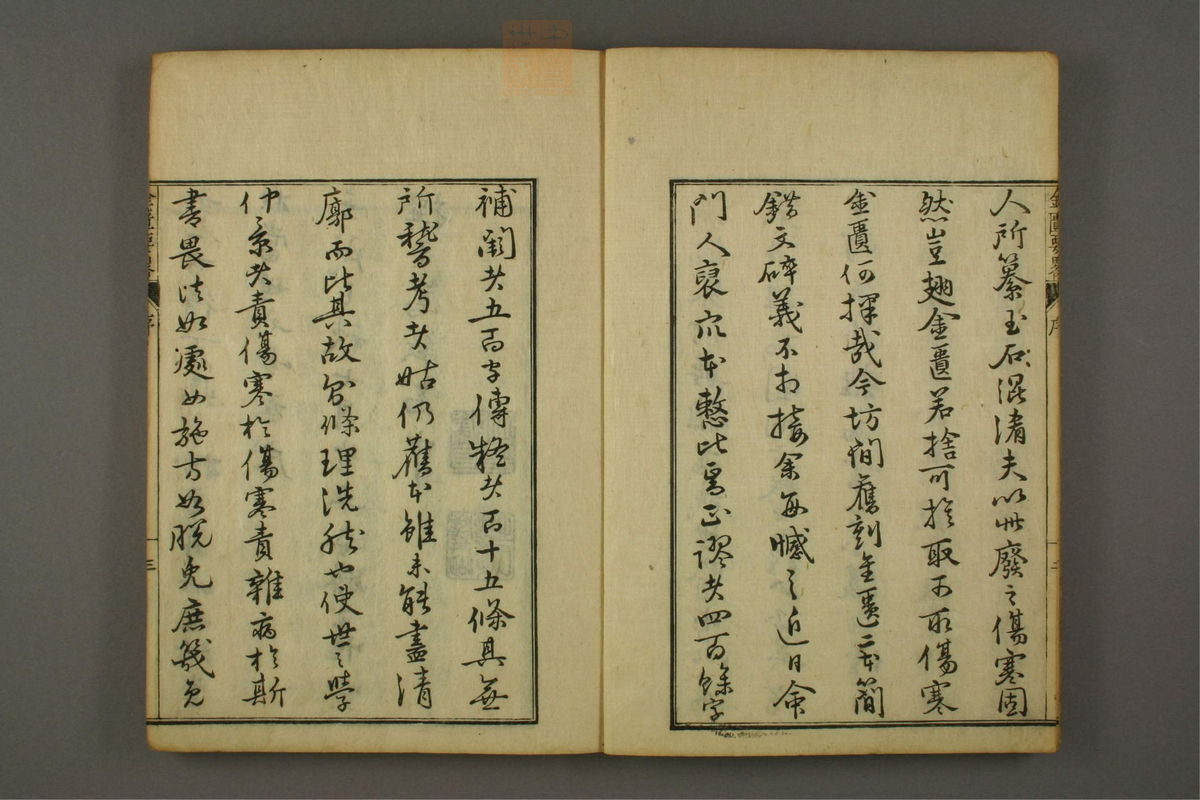 人所纂玉石混淆夫以此廢之傷寒固
然豈翅金匱若捨可捨取可取傷寒
金匱何擇哉今坊間舊刻金匱二本簡
錯文碎義不相接余每憾之近日命
門人裒宋本整比焉正謬者四百餘字
補闕者五百字傳疑者百十五條其無
所稽考者姑仍舊本雖未能盡清
廓而比其故則條理洗然也使世之學
仲景者責傷寒於傷寒責雜病於斯
書畏法如處女施方如脫兔庶幾免
金匱要略
序
三